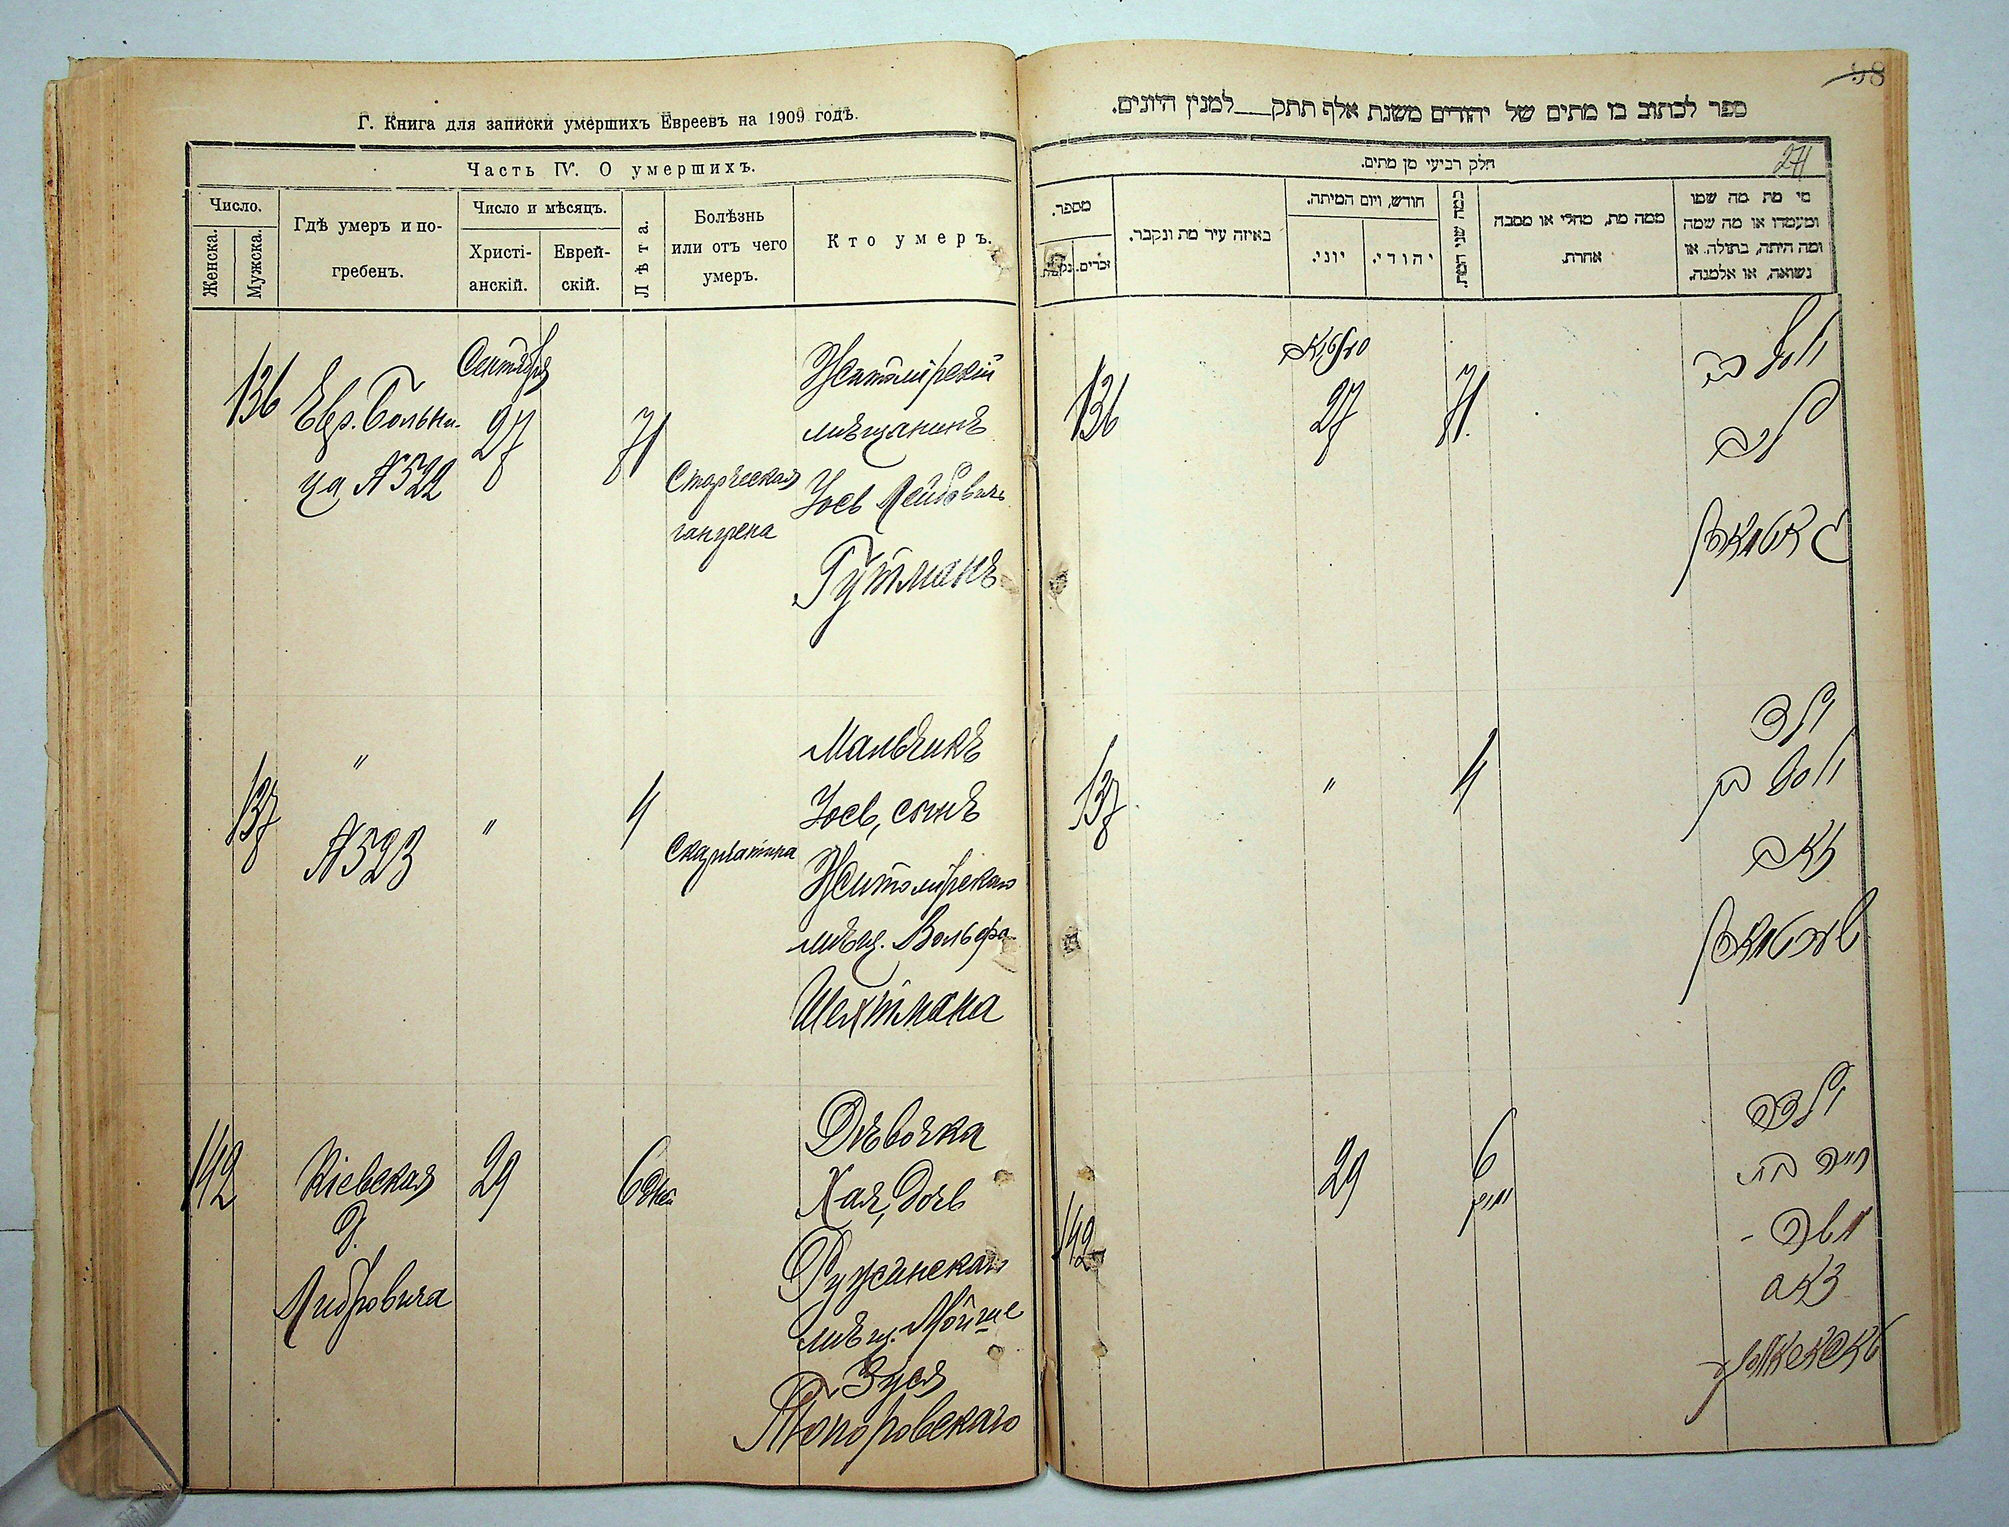 Г. Книга для записки умершихъ Евреевъ на 1909 годъ.
Часть IV. О умершихъ.
Число.
Женска.
Мужска.
Гдѣ умеръ и по-
гребенъ.
Число и мѣсяцъ.
Христі-
анскій.
Еврей-
скій.
Лѣта.
Болѣзнь
или отъ чего
умеръ.
Кто умеръ.
136
Евр. Больни-
ца № 522
Сентября
27
71
Старческая
гангрена
Житомірскій
мѣщанинъ
Іось Лейбовичъ
Гутманъ
137
"
№ 523
"
4
Скарлатина
Мальчикъ
Іось, сынъ
Житомірскаго
мѣщ. Вольфа
Шехтмана
142
Кіевская
д.
Либровича
29
6 дней
Дѣвочка
Хая, дочь
Ружинскаго
мѣщ. Мойше
Зуся
Топоровскаго
58
ספר לכתוב בו מתים של יהודים משנת אלף תתק___למנין היונים.
271
חלק רביעי מן מתים.
מספר.
נקבות
זכרים.
באיזה עיר מת ונקבר.
חודש, ויום המיתה.
יוני.
יהודי.
כמה שני המת.
ממה מת, מחלי או מסבה
אחרת.
מי מת מה שמו
ומעמדו או מה שמה
ומה היתה, בתולה, או
נשואה, או אלמנה.
136
27
71
יוסף בר
ליב
גוטמאן
137
"
4
ילד
יוסף בן
זאב
שעכטמאן
142
29
6
ימים
ילדה
חיה בת
משה -
זוסא